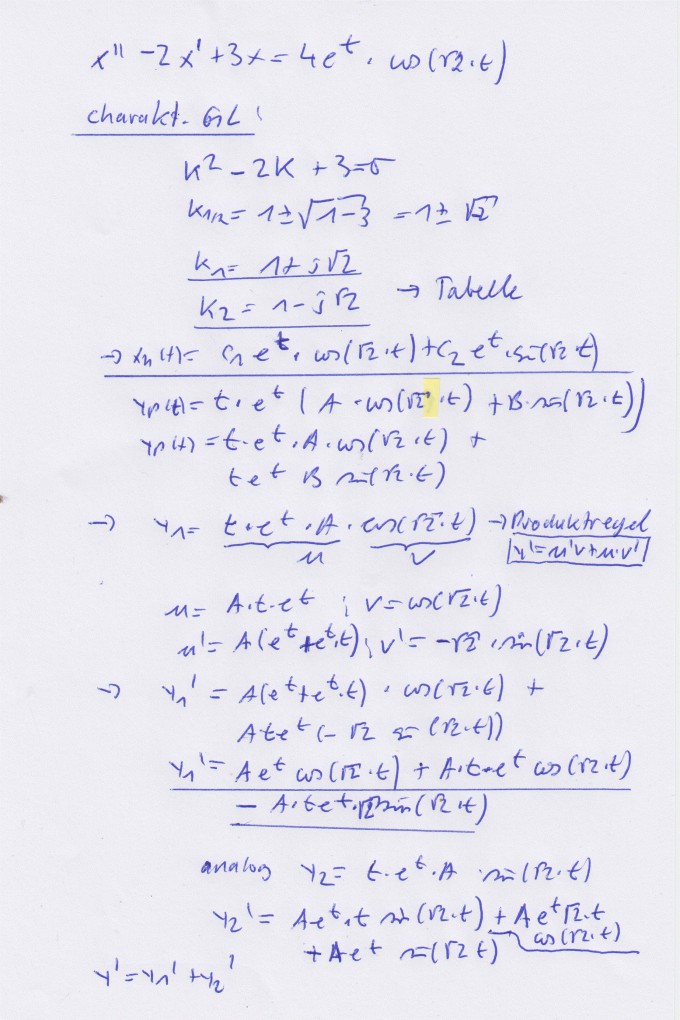 x'' - 2x' + 3x = 4e^t · cos(√2·t)
charakt. GL:
k² - 2k + 3 = 0
k1/2 = 1 ± √1-3 = 1 ± √2
k1 = 1 + j√2
k2 = 1 - j√2 → Tabelle
→ xh(t) = C1 e^t · cos(√2·t) + C2 e^t · sin(√2 t)
yp(t) = t · e^t (A · cos(√2·t) + B · sin(√2·t))
yp(t) = t · e^t · A · cos(√2·t) +
t e^t B sin(√2·t)
→ y1 = t · e^t · A · cos(√2·t) → Produktregel
u v y' = u'v + u·v'
u = A·t·e^t ; v = cos(√2·t)
u' = A(e^t + e^t·t) ; v' = -√2 · sin(√2·t)
→ y1' = A(e^t + e^t·t) · cos(√2·t) +
A t e^t (- √2 sin(√2·t))
y1' = A e^t cos(√2·t) + A·t·e^t cos(√2·t)
- A·t e^t·√2 sin(√2·t)
analog y2 = t·e^t·A · sin(√2·t)
y2' = A e^t·t sin(√2·t) + A e^t √2·t
cos(√2·t)
+ A e^t sin(√2 t)
y' = y1' + y2'